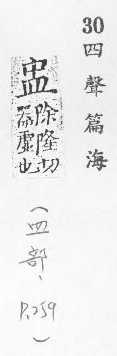 30四聲篇海
盅除隆切
器虛也
(皿部、P.259)